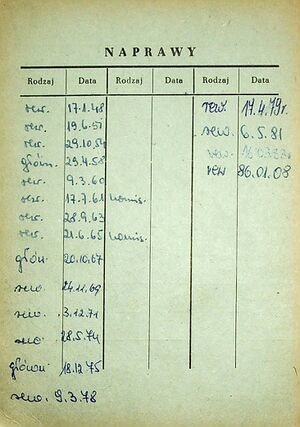 NAPRAWY
Rodzaj Data Rodzaj Data Rodzaj Data
rew. 17.1.48
rew. 19.6.51
rew. 29.10.54
główn. 29.4.58
rew. 9.3.60
rew. 17.7.61 nomis.
rew. 28.9.63
rew. 21.6.65 nomis.
głów. 20.10.67
rew. 24.11.69
rew. 3.12.71
rew. 28.5.74
główn. 18.12.75
rew. 9.3.78
rew. 17.4.79r.
rew. 6.5.81
rew.
rew 86.01.08